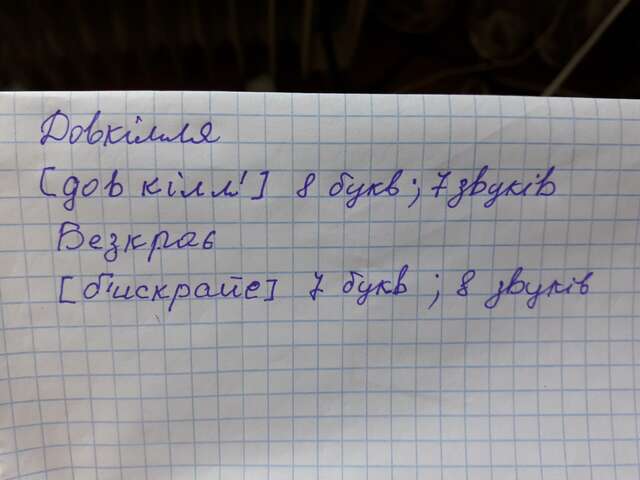 Довкілля
[довкілл'] 8 букв; 7 звуків
Безкрає
[б'искрайе] 7 букв; 8 звуків